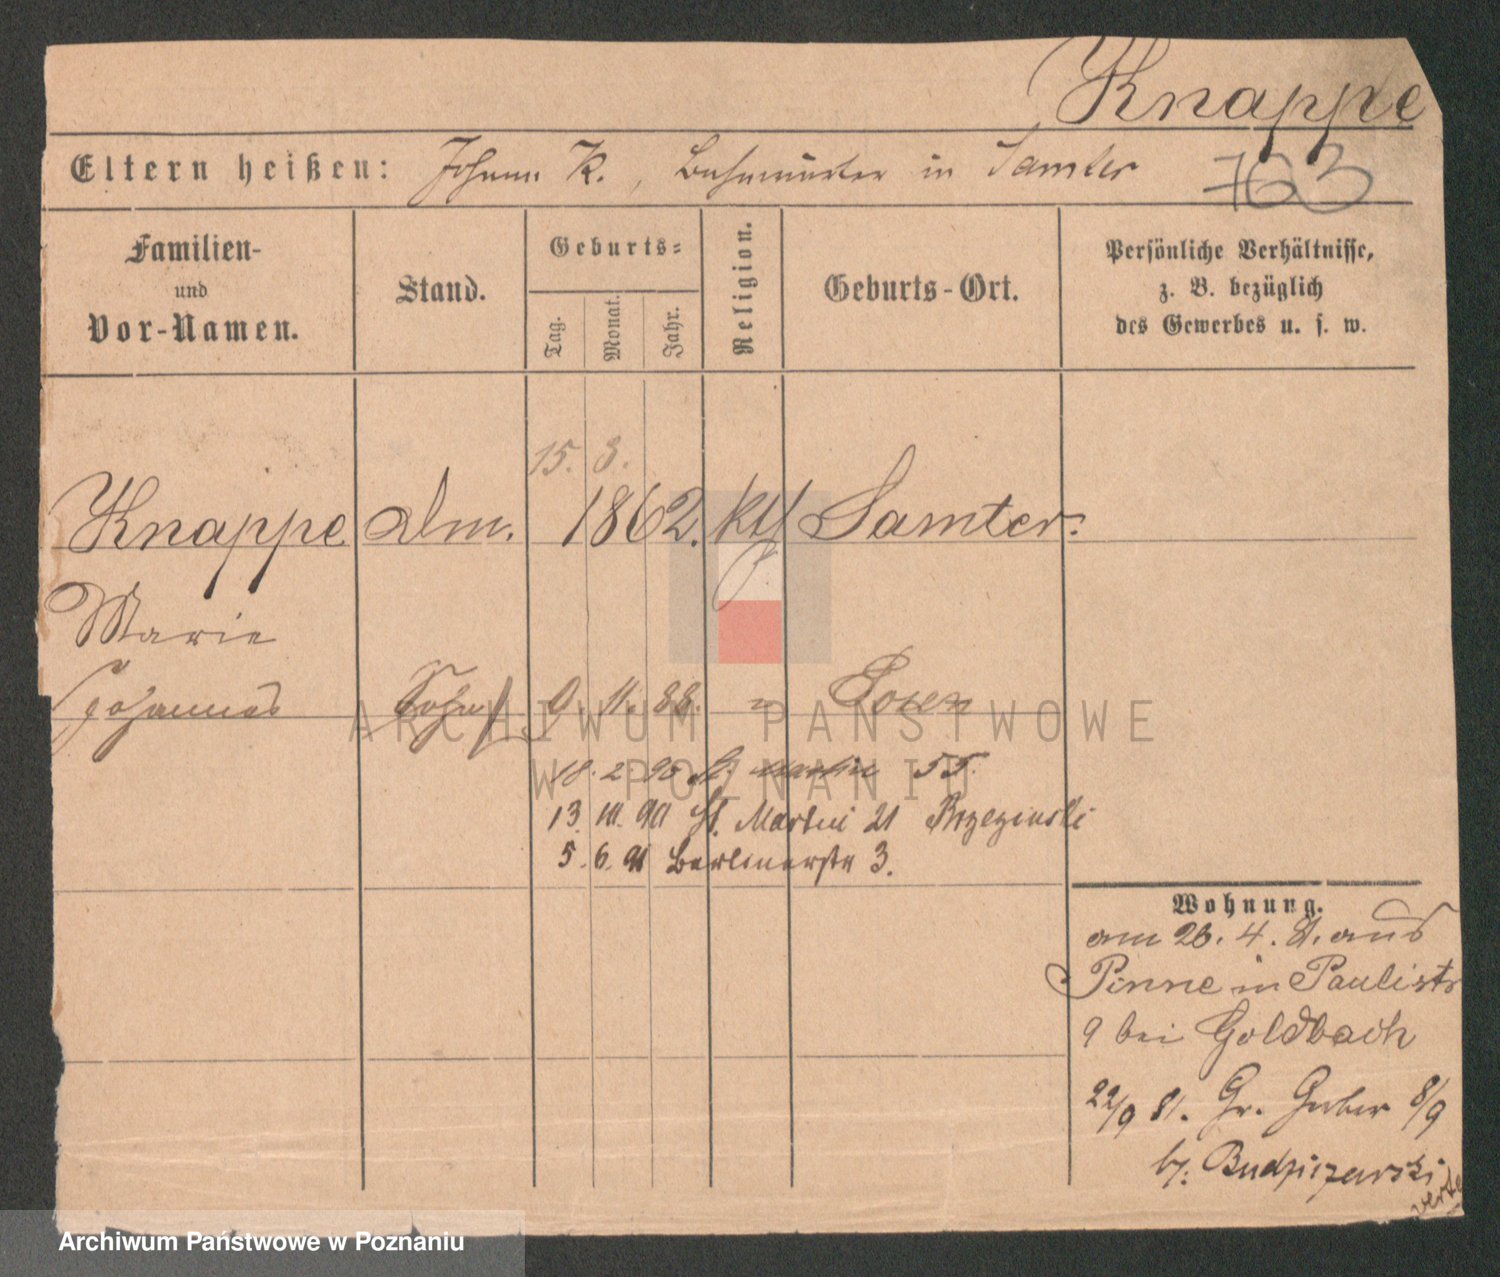 Knappe
Eltern heißen: Johann K., Bahnwärter in Samter
763
Familien-
und
Vor-Namen.
Stand.
Geburts-
Tag. Monat. Jahr.
Religion.
Geburts-Ort.
Persönliche Verhältnisse,
z. B. bezüglich
des Gewerbes u. s. w.
15. 3.
Knappe Dm. 1862. kth Samter.
Marie
Johannes Sohn 9. 11. 88. " Posen
18. 2. 90 St. Martin 55.
13. 10. 90 St. Martin 21 Brzezinski
5. 6. 91 Berlinerstr 3.
Wohnung.
am 26. 4. 81. aus
Pinne in Paulistr
9 bei Goldbach
22/9 81. Gr. Gerber 8/9
b/: Budziszewski
verte
ARCHIWUM PAŃSTWOWE
W POZNANIU
Archiwum Państwowe w Poznaniu